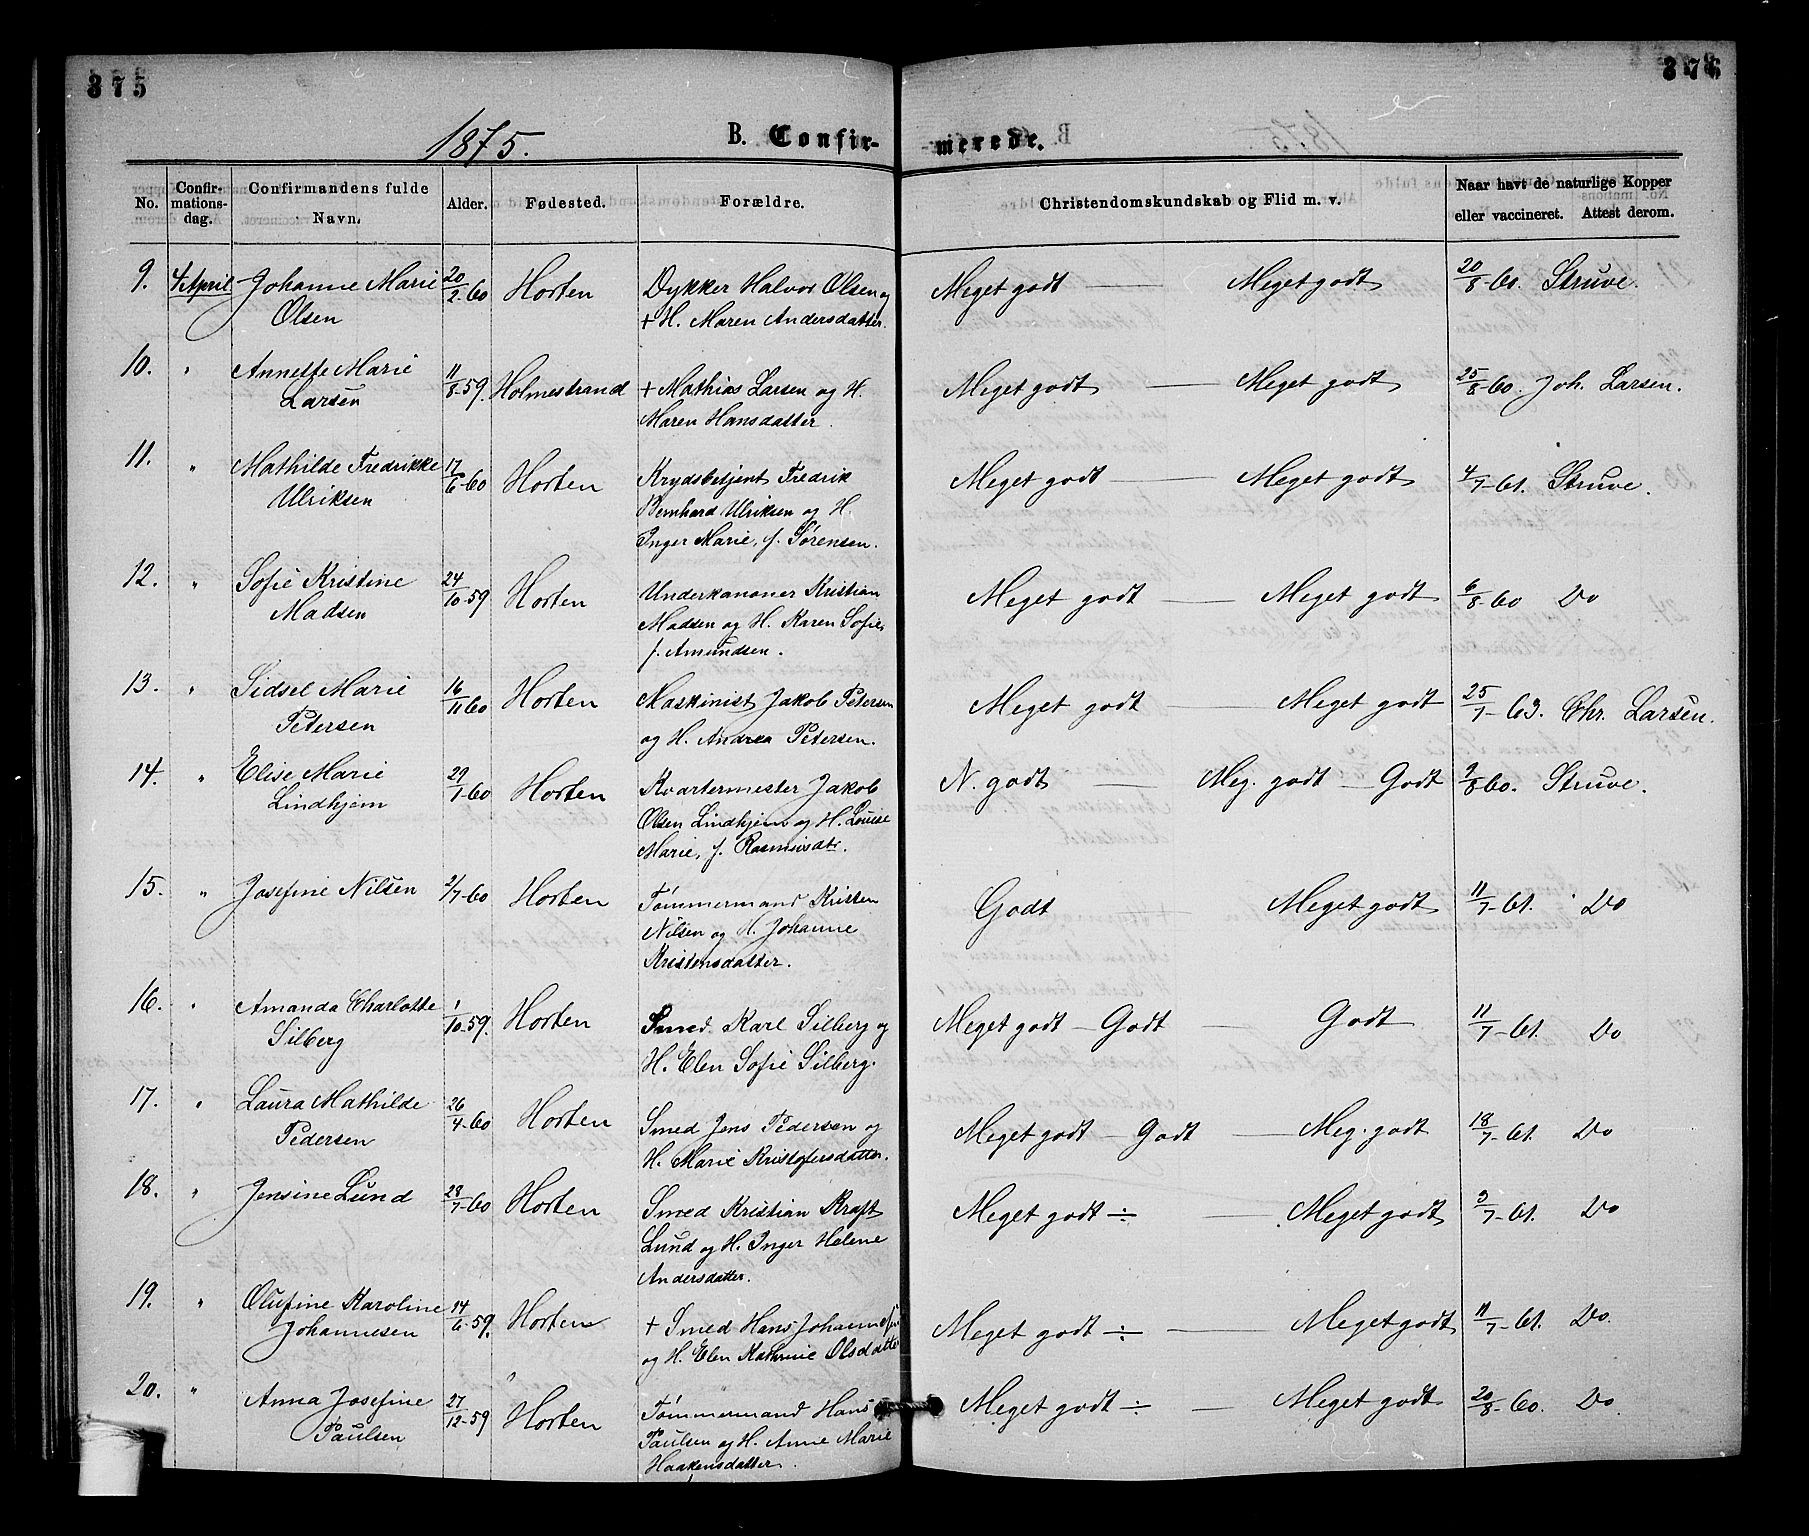 375
376
1875.
B. Confir-
merede.
No.
Confir-
mations-
dag.
Confirmandens fulde
Navn.
Alder.
Fødested.
Forældre.
Christendomskundskab og Flid m. v.
Naar havt de naturlige Kopper
eller vaccineret. Attest derom.
9. 4 April Johanne Marie 20/2-60 Horten Dykker Halvor Olsen og Meget godt — Meget godt 20/8-61. Struve.
Olsen + H. Maren Andersdatter.
10. " Annette Marie 11/8-59. Holmestrand + Mathias Larsen og H. Meget godt — Meget godt 25/8-60. Joh. Larsen.
Larsen Maren Hansdatter.
11. " Mathilde Fredrikke 17/6-60 Horten Krydsbetjent Fredrik Meget godt — Meget godt 4/7-61. Struve.
Ulriksen Bernhard Ulriksen og H.
Inger Marie, f. Sørensen.
12. " Sofie Kristine 24/10-59 Horten Underkanoner Kristian Meget godt — Meget godt 6/8-60 Do
Madsen Madsen og H. Karen Sofie
f. Amundsen.
13. " Sidsel Marie 16/11-60 Horten Maskinist Jakob Petersen Meget godt — Meget godt 25/7-63. Chr. Larsen.
Petersen og H. Andrea Petersen.
14. " Elise Marie 29/1-60 Horten Kvartermester Jakob N. godt — Meg. godt — Godt 9/8-60. Struve.
Lindhjem Olsen Lindhjem og H. Louise
Marie, f. Rasmusdtr.
15. " Josefine Nilsen 2/7-60 Horten Tømmermand Kristen Godt Meget godt 11/7-61. Do
Nilsen og H. Johanne
Kristensdatter.
16. " Amanda Charlotte 1/10-59. Horten Smed Karl Silberg og Meget godt — Godt — Godt 11/7-61. Do
Silberg H. Elen Sofie Silberg.
17. " Laura Mathilde 26/4-60 Horten Smed Jens Pedersen og Meget godt — Godt — Meg. godt 18/7-61. Do
Pedersen H. Marie Kristofersdatter.
18. " Jensine Lund 28/7-60 Horten Smed Kristian Kraft Meget godt ÷ — Meget godt 3/7-61. Do
Lund og H. Inger Helene
Andersdatter.
19. " Olufine Karoline 14/6-59. Horten + Smed Hans Johannesen Meget godt ÷ — Meget godt 11/7-61. Do.
Johannesen og H. Elen Kathrine Olsdatter
20. " Anna Josefine 27/12-59 Horten Tømmermand Hans Meget godt ÷ — Meget godt 20/8-60. Do
Paulsen Paulsen og H. Anne Marie
Haakensdatter.